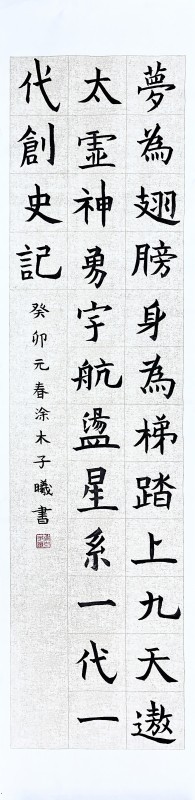 夢為翅膀身為梯踏上九天遨
太霊神勇宇航盪星系一代一
代創史記
癸卯元春涂木子曦書